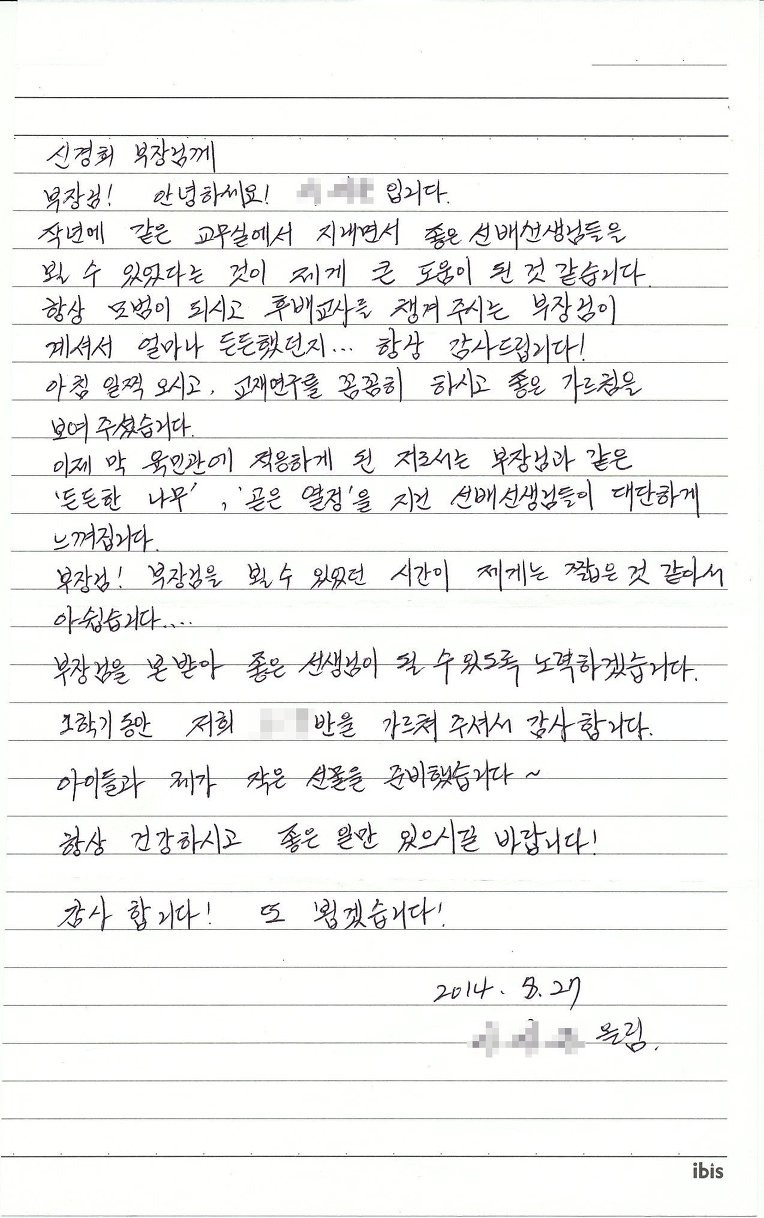 신경희 부장님께
부장님! 안녕하세요! 입니다.
작년에 같은 교무실에서 지내면서 좋은 선배선생님들을
뵐 수 있었다는 것이 제게 큰 도움이 된 것 같습니다.
항상 모범이 되시고 후배교사를 챙겨 주시는 부장님이
계셔서 얼마나 든든했던지... 항상 감사드립니다!
아침 일찍 오시고, 교재연구를 꼼꼼히 하시고 좋은 가르침을
보여 주셨습니다.
이제 막 목민관에 적응하게 된 저로서는 부장님과 같은
'든든한 나무', '곧은 열정'을 지닌 선배선생님들이 대단하게
느껴집니다.
부장님! 부장님을 뵐 수 있었던 시간이 제게는 짧은 것 같아서
아쉽습니다....
부장님을 본받아 좋은 선생님이 될 수 있도록 노력하겠습니다.
1학기 동안 저희 반을 가르쳐 주셔서 감사합니다.
아이들과 제가 작은 선물을 준비했습니다~
항상 건강하시고 좋은 일만 있으시길 바랍니다!
감사합니다! 또 뵙겠습니다!
2014. 8. 27
올림.
ibis